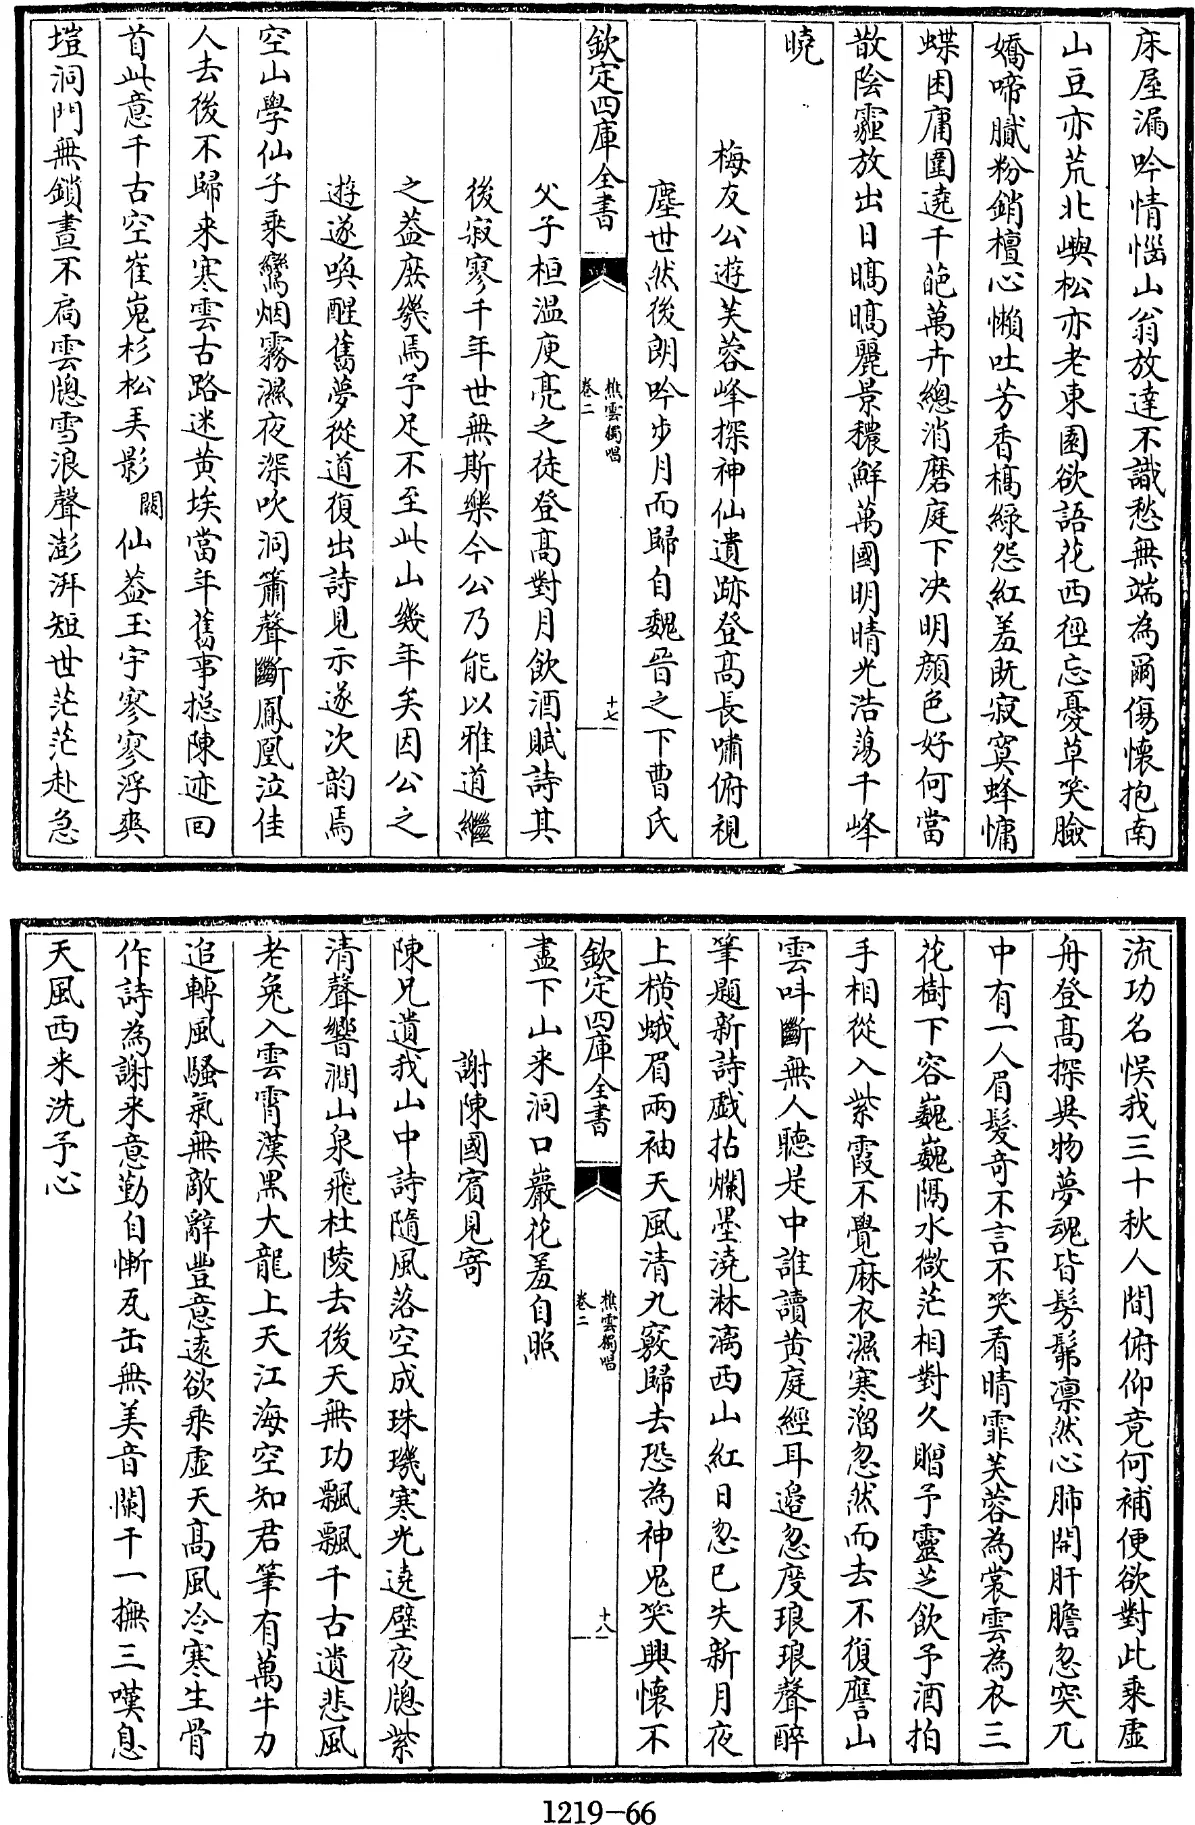 床屋漏吟情惱山翁放達不識愁無端為爾傷懷抱南
山豆亦荒北嶼松亦老東園欲語花西徑忘憂草笑臉
嬌啼膩粉銷檀心懶吐芳香槁綠怨紅羞既寂寞蜂慵
蝶困庸圍遶千葩萬卉總消磨庭下決明顏色好何當
散陰霾放出日暠暠麗景穠鮮萬國明晴光浩蕩千峰
曉
梅友公遊芙蓉峰探神仙遺跡登高長嘯俯視
塵世然後朗吟步月而歸自魏晉之下曹氏
欽定四庫全書
樵雲獨唱
卷二
十七
父子桓溫庾亮之徒登高對月飲酒賦詩其
後寂寥千年世無斯樂今公乃能以雅道繼
之蓋庶幾焉予足不至此山幾年矣因公之
遊遂喚醒舊夢從道復出詩見示遂次韵焉
空山學仙子乘鸞烟霧濕夜深吹洞簫聲斷鳳凰泣佳
人去後不歸来寒雲古路迷黄埃當年舊事揔陳迹回
首此意千古空崔嵬杉松弄影闕仙益玉宇寥寥浮爽
塏洞門無鎖晝不扃雲牕雪浪聲澎湃短世茫茫赴急
流功名悮我三十秋人間俯仰竟何補便欲對此乘虛
舟登高探異物夢魂皆髣髴凛然心肺開肝膽忽突兀
中有一人眉髮奇不言不笑看晴霏芙蓉為裳雲為衣三
花樹下容巍巍隔水微茫相對久贈予靈芝飲予酒拍
手相從入紫霞不覺麻衣濕寒溜忽然而去不復譍山
雲呌斷無人聽是中誰讀黄庭經耳邉忽度琅琅聲醉
筆題新詩戲拈爛墨澆淋漓西山紅日忽已失新月夜
上横蛾眉兩袖天風清九竅歸去恐為神鬼笑興懷不
欽定四庫全書
樵雲獨唱
卷二
十八
盡下山来洞口巖花羞自照
謝陳國賓見寄
陳兄遺我山中詩隨風落空成珠璣寒光遶壁夜牕紫
清聲響澗山泉飛杜陵去後天無功飄飄千古遺悲風
老兔入雲霄漢黒大龍上天江海空知君筆有萬牛力
追轉風騷氣無敵辭豐意遠欲乘虛天高風冷寒生骨
作詩為謝来意勤自慚瓦缶無美音闌干一撫三嘆息
天風西来洗予心
1219-66